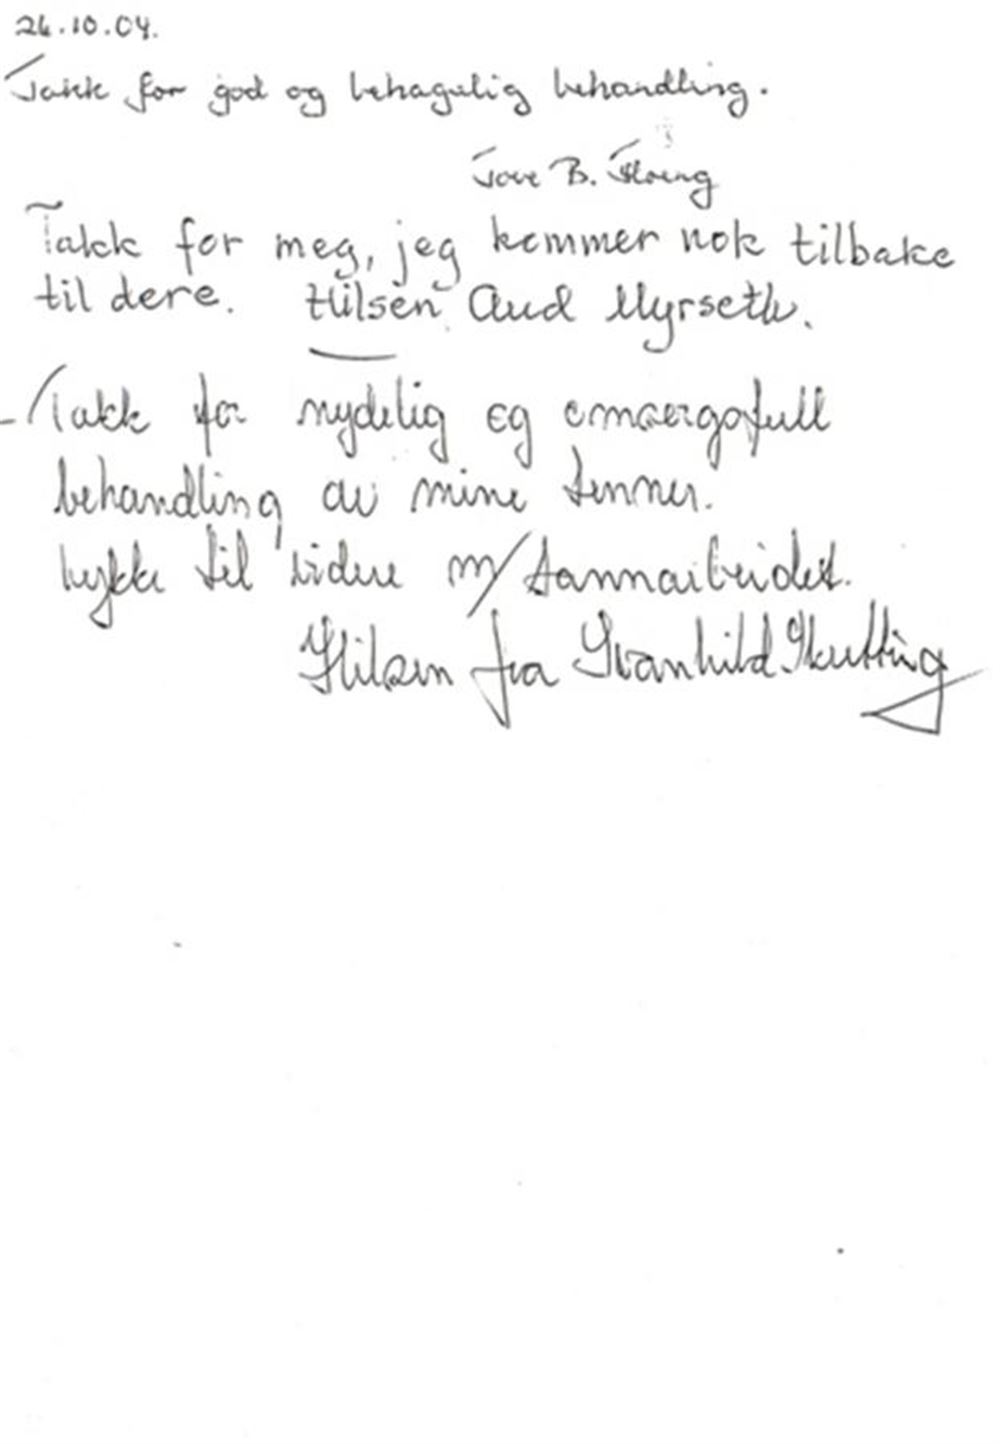 26.10.04.
Takk for god og behagelig behandling.
Tove B.
Takk for meg, jeg kommer nok tilbake
til dere. Hilsen Aud Myrseth.
- Takk for nydelig og omsorgsfull
behandling av mine tenner.
Lykke til videre m/tannarbeidet.
Hilsen fra Svanhild